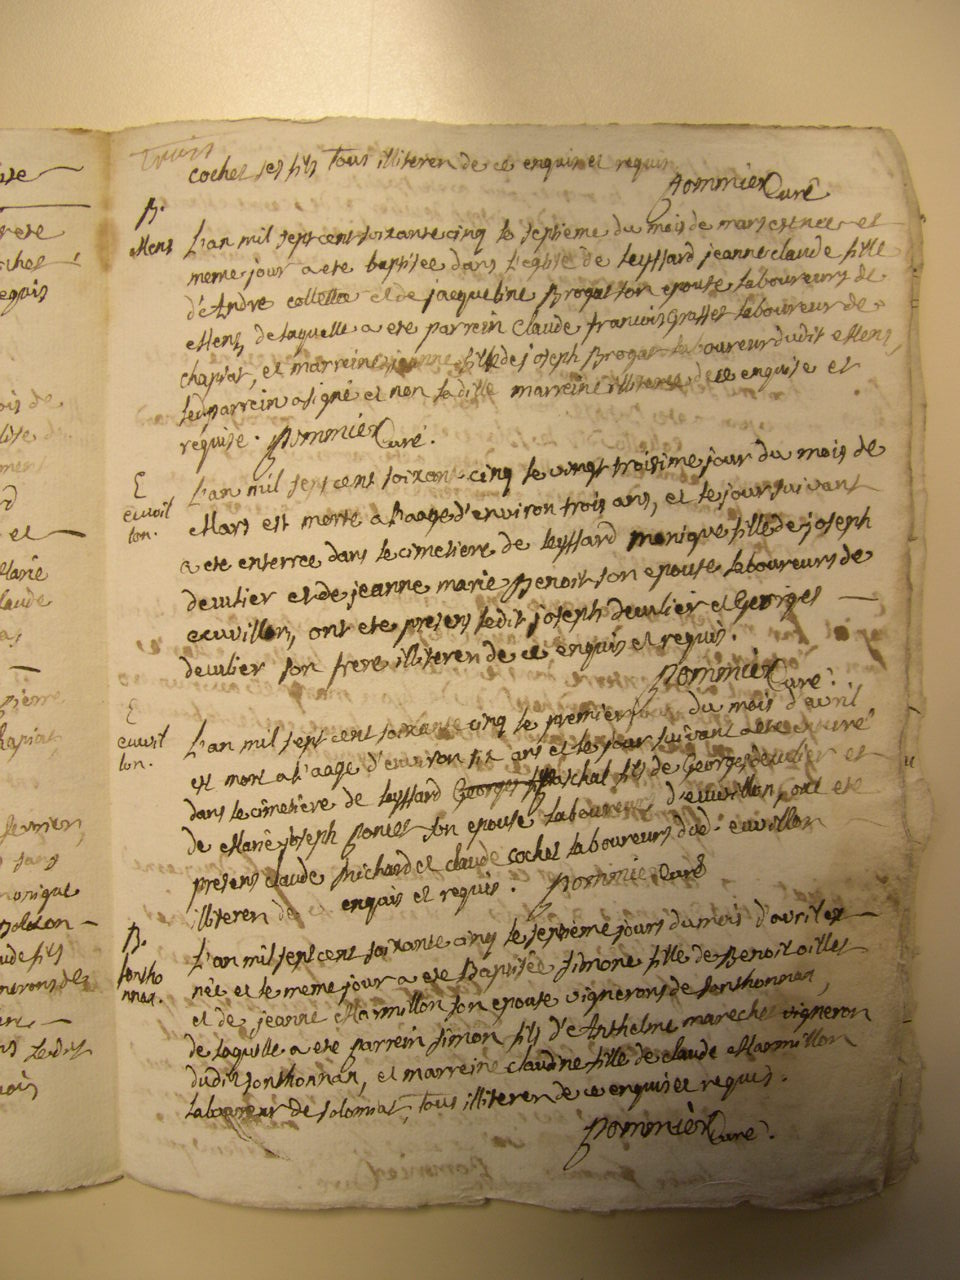 Trois
cochet ses fils Tous illiteren de ce enquis et requis
pommier Curé
B.
Mens
L'an mil sept cent soixante cinq le septieme du mois de mars est née et
meme jour a eté baptisée dans l'eglise de leyssard jeanne claude fille
d'André collettaz et de jacqueline Brogat son epouse laboureurs de
Mens de laquelle a eté parrein Claude francois Grasset laboureur de
chapiat, et marreine jeanne fille de joseph Brogat laboureur dudit Mens,
le parrein a signé et non la ditte marreine illiteree de ce enquise et
requise. pommier Curé.
E
euvil
lon.
L'an mil sept cent soixante cinq le vingt troisime jour du mois de
Mars est morte a l'aage d'environ trois ans, et le jour suivant
a eté enterrée dans le cimetiere de leyssard monique fille de joseph
deculier et de jeanne marie Benoit son epouse laboureurs de
euvillon, ont eté presens ledit joseph deculier et Georges
deculier son frere illiteren de ce enquis et requis.
pommier Curé.
E
euvil
lon.
L'an mil sept cent soixante cinq le premier du mois d'avril
est mort a l'aage d'environ six ans et le jour suivant a eté enterré
dans le cimetiere de leyssard Georges paschal fils de Georges deculier et
de Marie joseph poncet son epouse laboureurs d'euvillon, ont eté
presens claude Michard et claude cochet laboureurs dud. euvillon
illiteren de ce enquis et requis. pommier Curé
B.
sontho
nnax.
L'an mil sept cent soixante cinq le septieme jours du mois d'avril est
née et le meme jour a eté Baptisée simone fille de Benoit oillet
et de jeanne Marmillon son epouse vignerons de sonthonnax,
de laquelle a eté parrein simon fils d'Anthelme marechet vigneron
dudit sonthonnax, et marreine claudine fille de claude Marmillon
laboureur de solomiat, Tous illiteren de ce enquis et requis.
pommier Curé.